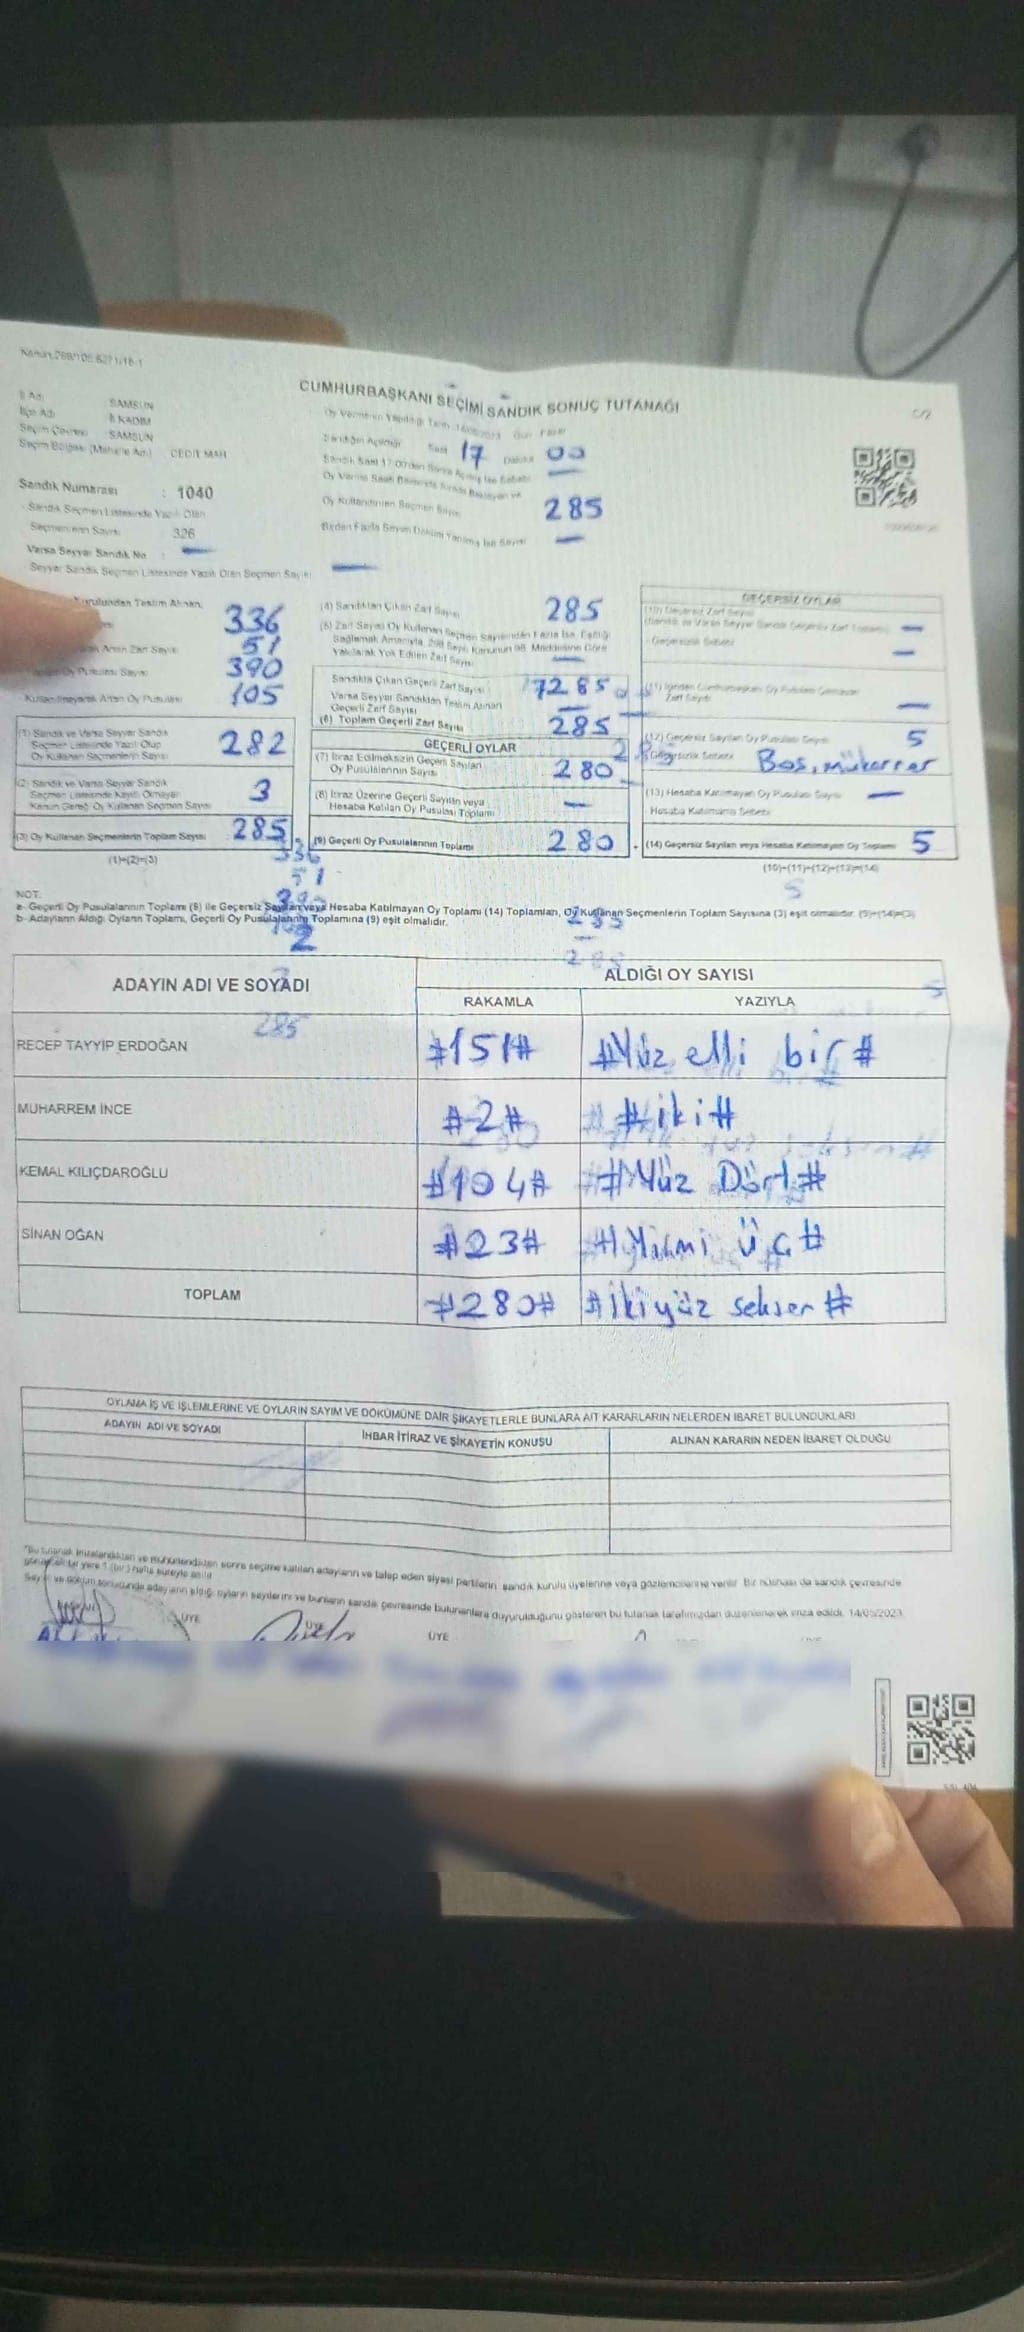 CUMHURBAŞKANI SEÇİMİ SANDIK SONUÇ TUTANAĞI
C/2
İl Adı : SAMSUN
İlçe Adı İLKADIM
Seçim Çevresi : SAMSUN
Seçim Bölgesi (Mahalle Adı) : CEDİT MAH
Oy Vermenin Yapıldığı Tarih : 14/05/2023 Gün : Pazar
Sandığın Açıldığı Saat 17 Dakika 00
Sandık Numarası : 1040
Sandık Seçmen Listesinde Yazılı Olan
Seçmenlerin Sayısı 326
Varsa Seyyar Sandık No : —
Seyyar Sandık Seçmen Listesinde Yazılı Olan Seçmen Sayısı —
Oy Kullandırılan Seçmen Sayısı 285
Birden Fazla Sayım Döküm Yapılmış İse Sayısı —
Kurulundan Teslim Alınan
336
Artan Zarf Sayısı 51
Oy Pusulası Sayısı 390
Kullanılmayarak Artan Oy Pusulası 105
(1) Sandık ve Varsa Seyyar Sandık
Seçmen Listesinde Yazılı Olup
Oy Kullanan Seçmenlerin Sayısı 282
(2) Sandık ve Varsa Seyyar Sandık
Seçmen Listesinde Kayıtlı Olmayıp
Kanun Gereği Oy Kullanan Seçmen Sayısı 3
(3) Oy Kullanan Seçmenlerin Toplam Sayısı : 285
(1)+(2)=(3)
(4) Sandıktan Çıkan Zarf Sayısı 285
(5) Zarf Sayısı Oy Kullanan Seçmen Sayısından Fazla İse, Eşitliği
Sağlamak Amacıyla 298 Sayılı Kanunun 98. Maddesine Göre
Yakılarak Yok Edilen Zarf Sayısı —
Sandıkta Çıkan Geçerli Zarf Sayısı 285
Varsa Seyyar Sandıktan Teslim Alınan
Geçerli Zarf Sayısı —
(6) Toplam Geçerli Zarf Sayısı 285
GEÇERLİ OYLAR
(7) İtiraz Edilmeksizin Geçerli Sayılan
Oy Pusulalarının Sayısı 280
(8) İtiraz Üzerine Geçerli Sayılan veya
Hesaba Katılan Oy Pusulası Toplamı —
(9) Geçerli Oy Pusulalarının Toplamı 280
GEÇERSİZ OYLAR
(10) Geçersiz Zarf Sayısı
—
Geçersizlik Sebebi —
Zarf Sayısı —
(12) Geçersiz Sayılan Oy Pusulası Sayısı 5
Geçersizlik Sebebi Boş, mükerrer
(13) Hesaba Katılmayan Oy Pusulası Sayısı —
Hesaba Katılmama Sebebi
(14) Geçersiz Sayılan veya Hesaba Katılmayan Oy Toplamı 5
(10)+(11)+(12)+(13)=(14)
NOT:
a- Geçerli Oy Pusulalarının Toplamı (9) ile Geçersiz Sayılan veya Hesaba Katılmayan Oy Toplamı (14) Toplamları, Oy Kullanan Seçmenlerin Toplam Sayısına (3) eşit olmalıdır. (9)+(14)=(3)
b- Adayların Aldığı Oyların Toplamı, Geçerli Oy Pusulalarının Toplamına (9) eşit olmalıdır.
ADAYIN ADI VE SOYADI ALDIĞI OY SAYISI
RAKAMLA YAZIYLA
RECEP TAYYİP ERDOĞAN #151# #Yüz elli bir#
MUHARREM İNCE #2# #iki#
KEMAL KILIÇDAROĞLU #104# #Yüz Dört#
SİNAN OĞAN #23# #Yirmi Üç#
TOPLAM #280# #ikiyüz seksen#
OYLAMA İŞ VE İŞLEMLERİNE VE OYLARIN SAYIM VE DÖKÜMÜNE DAİR ŞİKAYETLERLE BUNLARA AİT KARARLARIN NELERDEN İBARET BULUNDUKLARI
ADAYIN ADI VE SOYADI İHBAR İTİRAZ VE ŞİKAYETİN KONUSU ALINAN KARARIN NEDEN İBARET OLDUĞU
*Bu tutanak imzalandıktan ve mühürlendikten sonra seçime katılan adayların ve talep eden siyasi partilerin sandık kurulu üyelerine veya gözlemcilerine verilir. Bir nüshası da sandık çevresinde
Sayım ve döküm sonucunda adayların aldığı oyların sayılarını ve bunların sandık çevresinde bulunanlara duyurulduğunu gösteren bu tutanak tarafımızdan düzenlenerek imza edildi. 14/05/2023
ÜYE ÜYE ÜYE